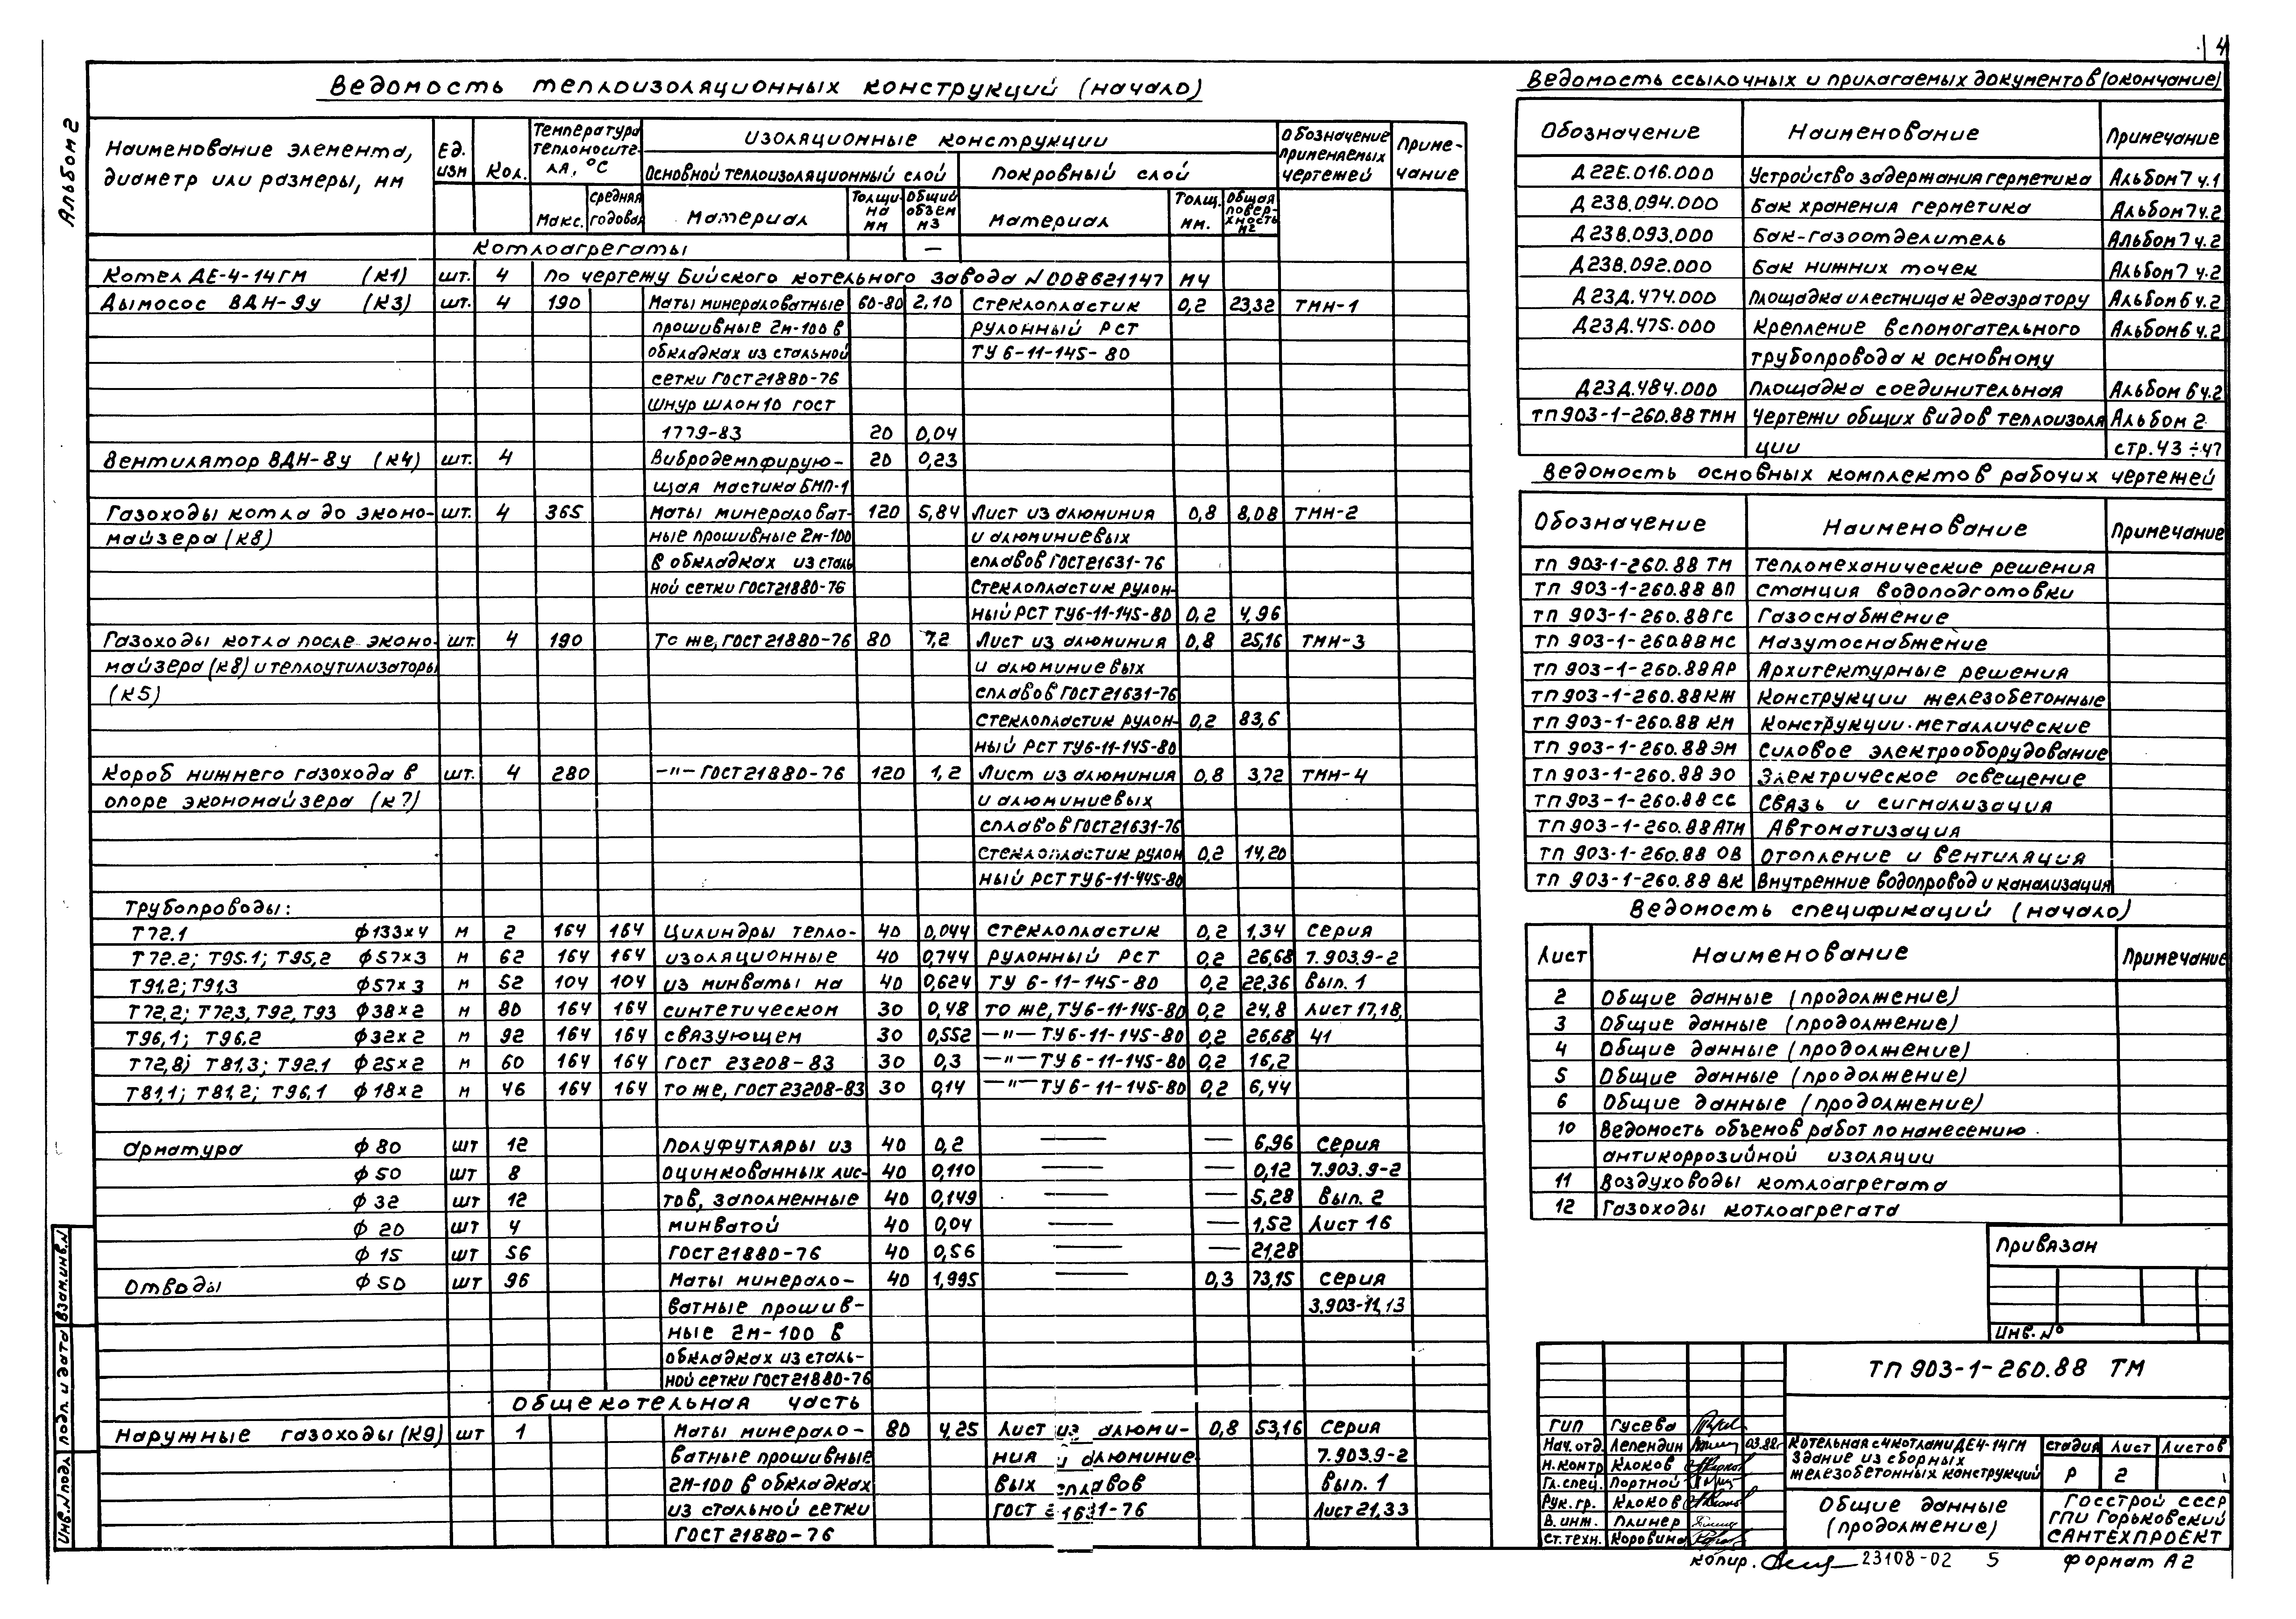 4
Альбом 2
Ведомость теплоизоляционных конструкций (начало)
Наименование элемента, диаметр или размеры, мм
Ед. изм
Кол.
Температура теплоносителя, °С
Макс.
Средняя годовая
Изоляционные конструкции
Основной теплоизоляционный слой
Покровный слой
Материал
Толщина мм
Общий объем м3
Материал
Толщ. мм.
Общая поверхность м2
Обозначение применяемых чертежей
Примечание
Котлоагрегаты —
Котел ДЕ-4-14ГМ (К1) шт. 4 по чертежу Бийского котельного завода N008621147 МЧ
Дымосос ВДН-9у (К3) шт. 4 190 Маты минераловатные 60-80 2.10 Стеклопластик 0,2 23,32 ТМН-1
прошивные 2м-100 в рулонный РСТ
обкладках из стальной ТУ 6-11-145-80
сетки ГОСТ 21880-76
Шнур шлон10 ГОСТ
1779-83 20 0,04
Вентилятор ВДН-8у (К4) шт. 4 Вибродемпфирую- 20 0,23
щая мастика БМП-1
Газоходы котла до эконо- шт. 4 365 Маты минераловат- 120 5,84 Лист из алюминия 0,8 8,08 ТМН-2
майзера (К8) ные прошивные 2м-100 и алюминиевых
в обкладках из сталь сплавов ГОСТ21631-76
ной сетки ГОСТ21880-76 Стеклопластик рулон-
ный РСТ ТУ6-11-145-80 0,2 4,96
Газоходы котла после эконо- шт. 4 190 То же, ГОСТ 21880-76 80 7,2 Лист из алюминия 0,8 25,16 ТМН-3
майзера (К8) и теплоутилизаторы и алюминиевых
(К5) сплавов ГОСТ 21631-76
Стеклопластик рулон- 0,2 83,6
ный РСТ ТУ6-11-145-80
Короб нижнего газохода в шт. 4 280 —"— ГОСТ 21880-76 120 1,2 Лист из алюминия 0,8 3,72 ТМН-4
опоре экономайзера (К7) и алюминиевых
сплавов ГОСТ 21631-76
Стеклопластик рулон 0,2 14,20
ный РСТ ТУ6-11-445-80
Трубопроводы:
Т72.1 ф133×4 м 2 164 164 Цилиндры тепло- 40 0,044 Стеклопластик 0,2 1,34 Серия
Т72.2; Т95.1; Т95,2 ф57×3 м 62 164 164 изоляционные 40 0,744 рулонный РСТ 0,2 26,68 7.903.9-2
Т91.2; Т91,3 ф57×3 м 52 104 104 из минваты на 40 0,624 ТУ 6-11-145-80 0,2 22,36 вып. 1
Т72,2; Т72,3, Т92, Т93 ф38×2 м 80 164 164 синтетическом 30 0,48 то же, ТУ6-11-145-80 0,2 24,8 Лист 17,18,
Т96,1; Т96.2 ф32×2 м 92 164 164 связующем 30 0,552 —"— ТУ6-11-145-80 0,2 26,68 41
Т72,8; Т81,3; Т92.1 ф25×2 м 60 164 164 ГОСТ 23208-83 30 0,3 —"— ТУ6-11-145-80 0,2 16,2
Т81,1; Т81,2; Т96,1 ф18×2 м 46 164 164 то же, ГОСТ 23208-83 30 0,14 —"— ТУ6-11-145-80 0,2 6,44
Арматура ф80 шт 12 Полуфутляры из 40 0,2 — — 6,96 Серия
ф50 шт 8 оцинкованных лис- 40 0,110 — — 0,12 7.903.9-2
ф32 шт 12 тов, заполненные 40 0,149 — — 5,28 вып. 2
ф20 шт 4 минватой 40 0,04 — — 1,52 Лист 16
ф15 шт 56 ГОСТ 21880-76 40 0,56 — — 21,28
Отводы ф50 шт 96 Маты минерало- 40 1,995 — 0,3 73,15 Серия
ватные прошив- 3.903-11,13
ные 2м-100 в
обкладках из сталь-
ной сетки ГОСТ21880-76
Общекотельная часть
Наружные газоходы (К9) шт 1 Маты минерало- 80 4,25 Лист из алюми- 0,8 53,16 Серия
ватные прошивные ния и алюминие 7.903.9-2
2м-100 в обкладках вых сплавов вып. 1
из стальной сетки ГОСТ 21631-76 Лист 21,33
ГОСТ 21880-76
Ведомость ссылочных и прилагаемых документов (окончание)
Обозначение Наименование Примечание
Д 22Е.016.000 Устройство задержания герметика Альбом 7 ч.1
Д 23В.094.000 Бак хранения герметика Альбом 7 ч.2
Д 23В.093.000 Бак-газоотделитель Альбом 7 ч.2
Д 23В.092.000 Бак нижних точек Альбом 7 ч.2
Д 23Д.474.000 Площадка и лестница к деаэратору Альбом 6 ч.2
Д 23Д.475.000 Крепление вспомогательного Альбом 6 ч.2
трубопровода к основному
Д 23Д.484.000 Площадка соединительная Альбом 6 ч.2
ТП 903-1-260.88 ТМН Чертежи общих видов теплоизоля Альбом 2
ции стр. 43÷47
Ведомость основных комплектов рабочих чертежей
Обозначение Наименование Примечание
ТП 903-1-260.88 ТМ Тепломеханические решения
ТП 903-1-260.88 ВП Станция водоподготовки
ТП 903-1-260.88 ГС Газоснабжение
ТП 903-1-260.88 МС Мазутоснабжение
ТП 903-1-260.88 АР Архитектурные решения
ТП 903-1-260.88 КЖ Конструкции железобетонные
ТП 903-1-260.88 КМ Конструкции металлические
ТП 903-1-260.88 ЭМ Силовое электрооборудование
ТП 903-1-260.88 ЭО Электрическое освещение
ТП 903-1-260.88 СС Связь и сигнализация
ТП 903-1-260.88 АТМ Автоматизация
ТП 903-1-260.88 ОВ Отопление и вентиляция
ТП 903-1-260.88 ВК Внутренние водопровод и канализация
Ведомость спецификаций (начало)
Лист Наименование Примечание
2 Общие данные (продолжение)
3 Общие данные (продолжение)
4 Общие данные (продолжение)
5 Общие данные (продолжение)
6 Общие данные (продолжение)
10 Ведомость объемов работ по нанесению
антикоррозийной изоляции
11 Воздуховоды котлоагрегата
12 Газоходы котлоагрегата
Привязан
Инв. №
ТП 903-1-260.88 ТМ
ГИП Гусева
Нач. отд. Лепендин 03.88г.
Н. контр Клоков
Гл. спец. Портной
Рук. гр. Клоков
В. инж. Плинер
Ст. техн. Коровина
Котельная с 4 котлами ДЕ4-14ГМ
Здание из сборных
железобетонных конструкций
Стадия Лист Листов
Р 2
Общие данные
(продолжение)
Госстрой СССР
ГПИ Горьковский
САНТЕХПРОЕКТ
Копир. 23108-02 5 Формат А2
Взам. инв. N
Подп. и дата
Инв. N подл